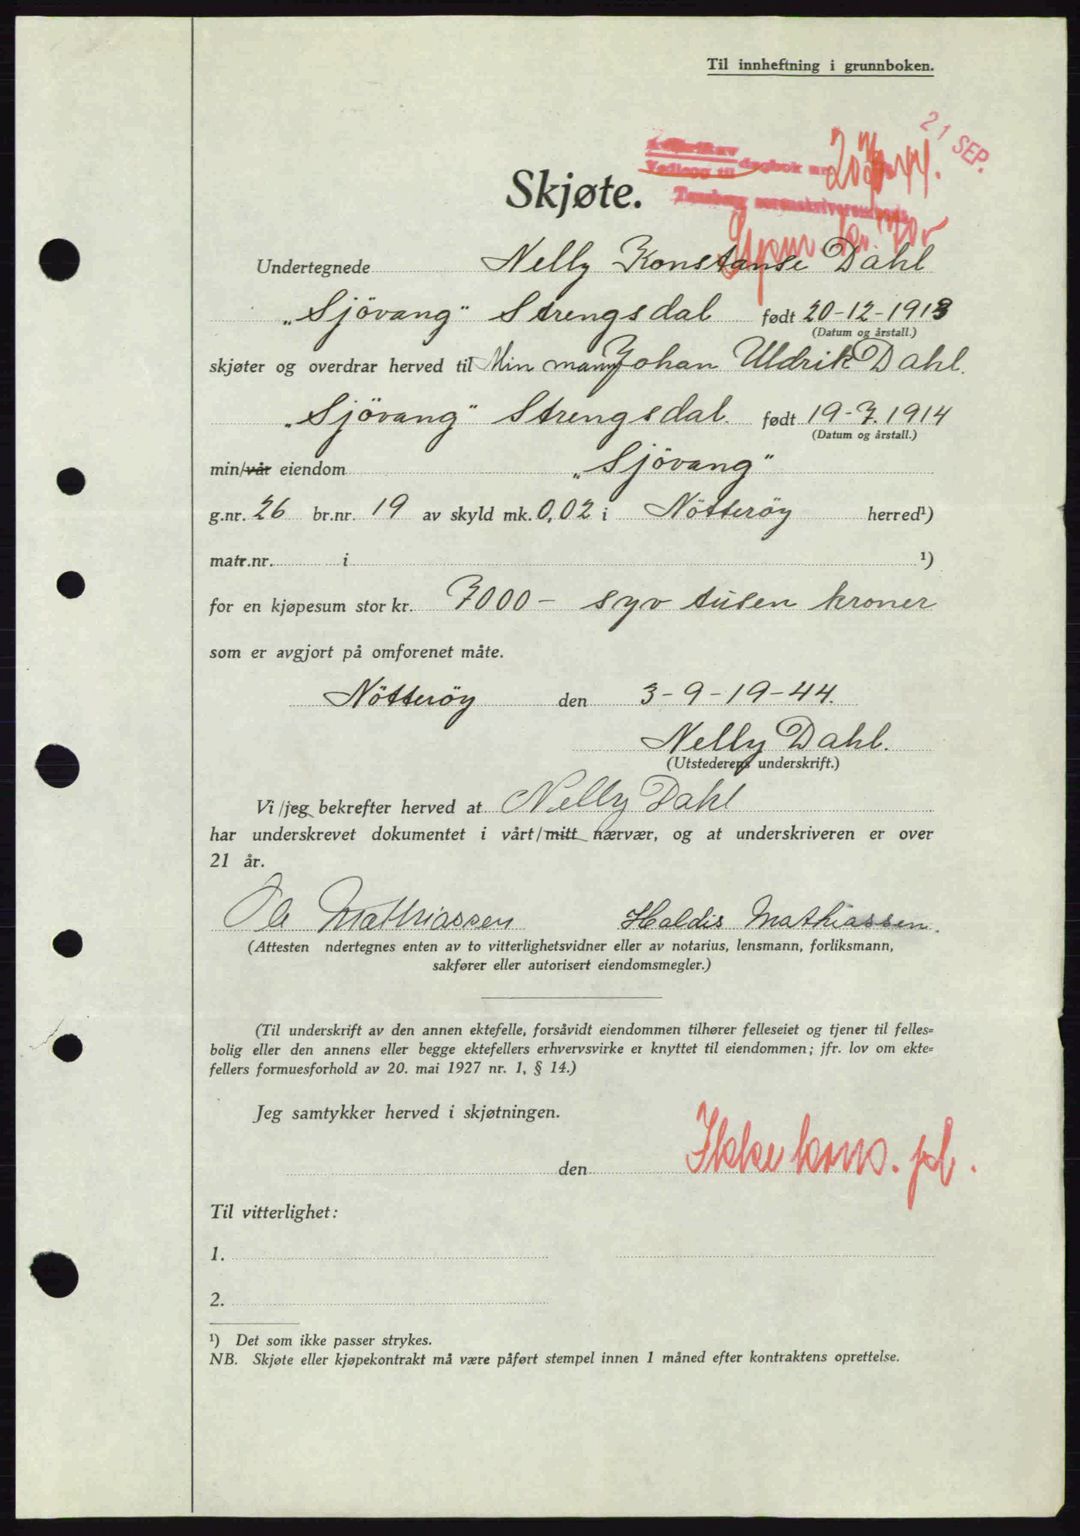 Til innheftning i grunnboken.
21 SEP.
Avskrift av
Vedlegg til dagbok nr.
Tønsberg sorenskriverembede
Skjøte.
Undertegnede Nelly Konstanse Dahl
„Sjövang" Strengsdal født 20-12-1913
(Datum og årstall.)
skjøter og overdrar herved til Min mann Johan Uldrik Dahl.
„Sjövang" Strengsdal. født 19-7.1914
(Datum og årstall.)
min/vår eiendom „Sjövang"
g.nr. 26 br.nr. 19 av skyld mk. 0,02 i Nötteröy herred¹)
matr.nr. i ¹)
for en kjøpesum stor kr. 7000- syv tusen kroner
som er avgjort på omforenet måte.
Nötteröy den 3-9-19-44.
Nelly Dahl.
(Utstederens underskrift.)
Vi/jeg bekrefter herved at Nelly Dahl
har underskrevet dokumentet i vårt/mitt nærvær, og at underskriveren er over
21 år.
Mathiassen Haldis Mathiassen.
(Attesten ndertegnes enten av to vitterlighetsvidner eller av notarius, lensmann, forliksmann,
sakfører eller autorisert eiendomsmegler.)
(Til underskrift av den annen ektefelle, forsåvidt eiendommen tilhører felleseiet og tjener til felles=
bolig eller den annens eller begge ektefellers erhvervsvirke er knyttet til eiendommen; jfr. lov om ekte=
fellers formuesforhold av 20. mai 1927 nr. 1, § 14.)
Jeg samtykker herved i skjøtningen.
den Ikke kons. pl.
Til vitterlighet:
1.
2.
¹) Det som ikke passer strykes.
NB. Skjøte eller kjøpekontrakt må være påført stempel innen 1 måned efter kontraktens oprettelse.